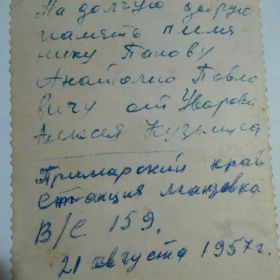 На долгую добрую
память племя
нику Попову
Анатолию Павло
вичу от Уварова
Алексея Кузьмича
Примарский край
Станция Манзовка
В/С 159.
21 августа 1957г.